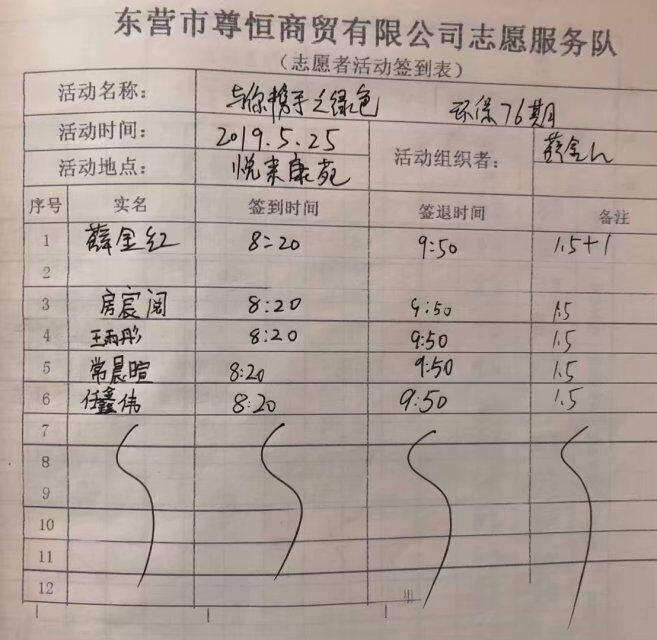 东营市尊恒商贸有限公司志愿服务队
（志愿者活动签到表）
活动名称： 与你携手之绿色 环保76期
活动时间： 2019.5.25
活动地点： 悦来康苑 活动组织者： 薛金红
序号 实名 签到时间 签退时间 备注
1 薛金红 8:20 9:50 1.5+1
2
3 房宸阅 8:20 9:50 1.5
4 王雨彤 8:20 9:50 1.5
5 常晨暄 8:20 9:50 1.5
6 任鑫伟 8:20 9:50 1.5
7
8
9
10
11
12